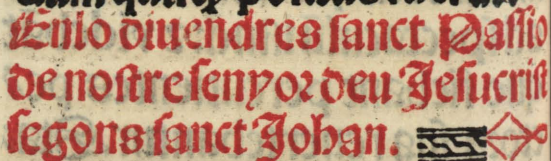 Enlo diuendres sanct Passio
de nostre senyor deu Jesucrist
segons sanct Johan.